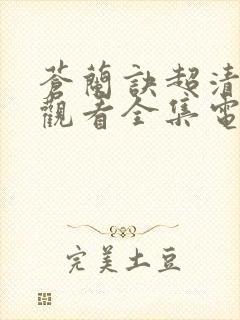 蒼蘭訣超清
觀看全集電
完美土豆